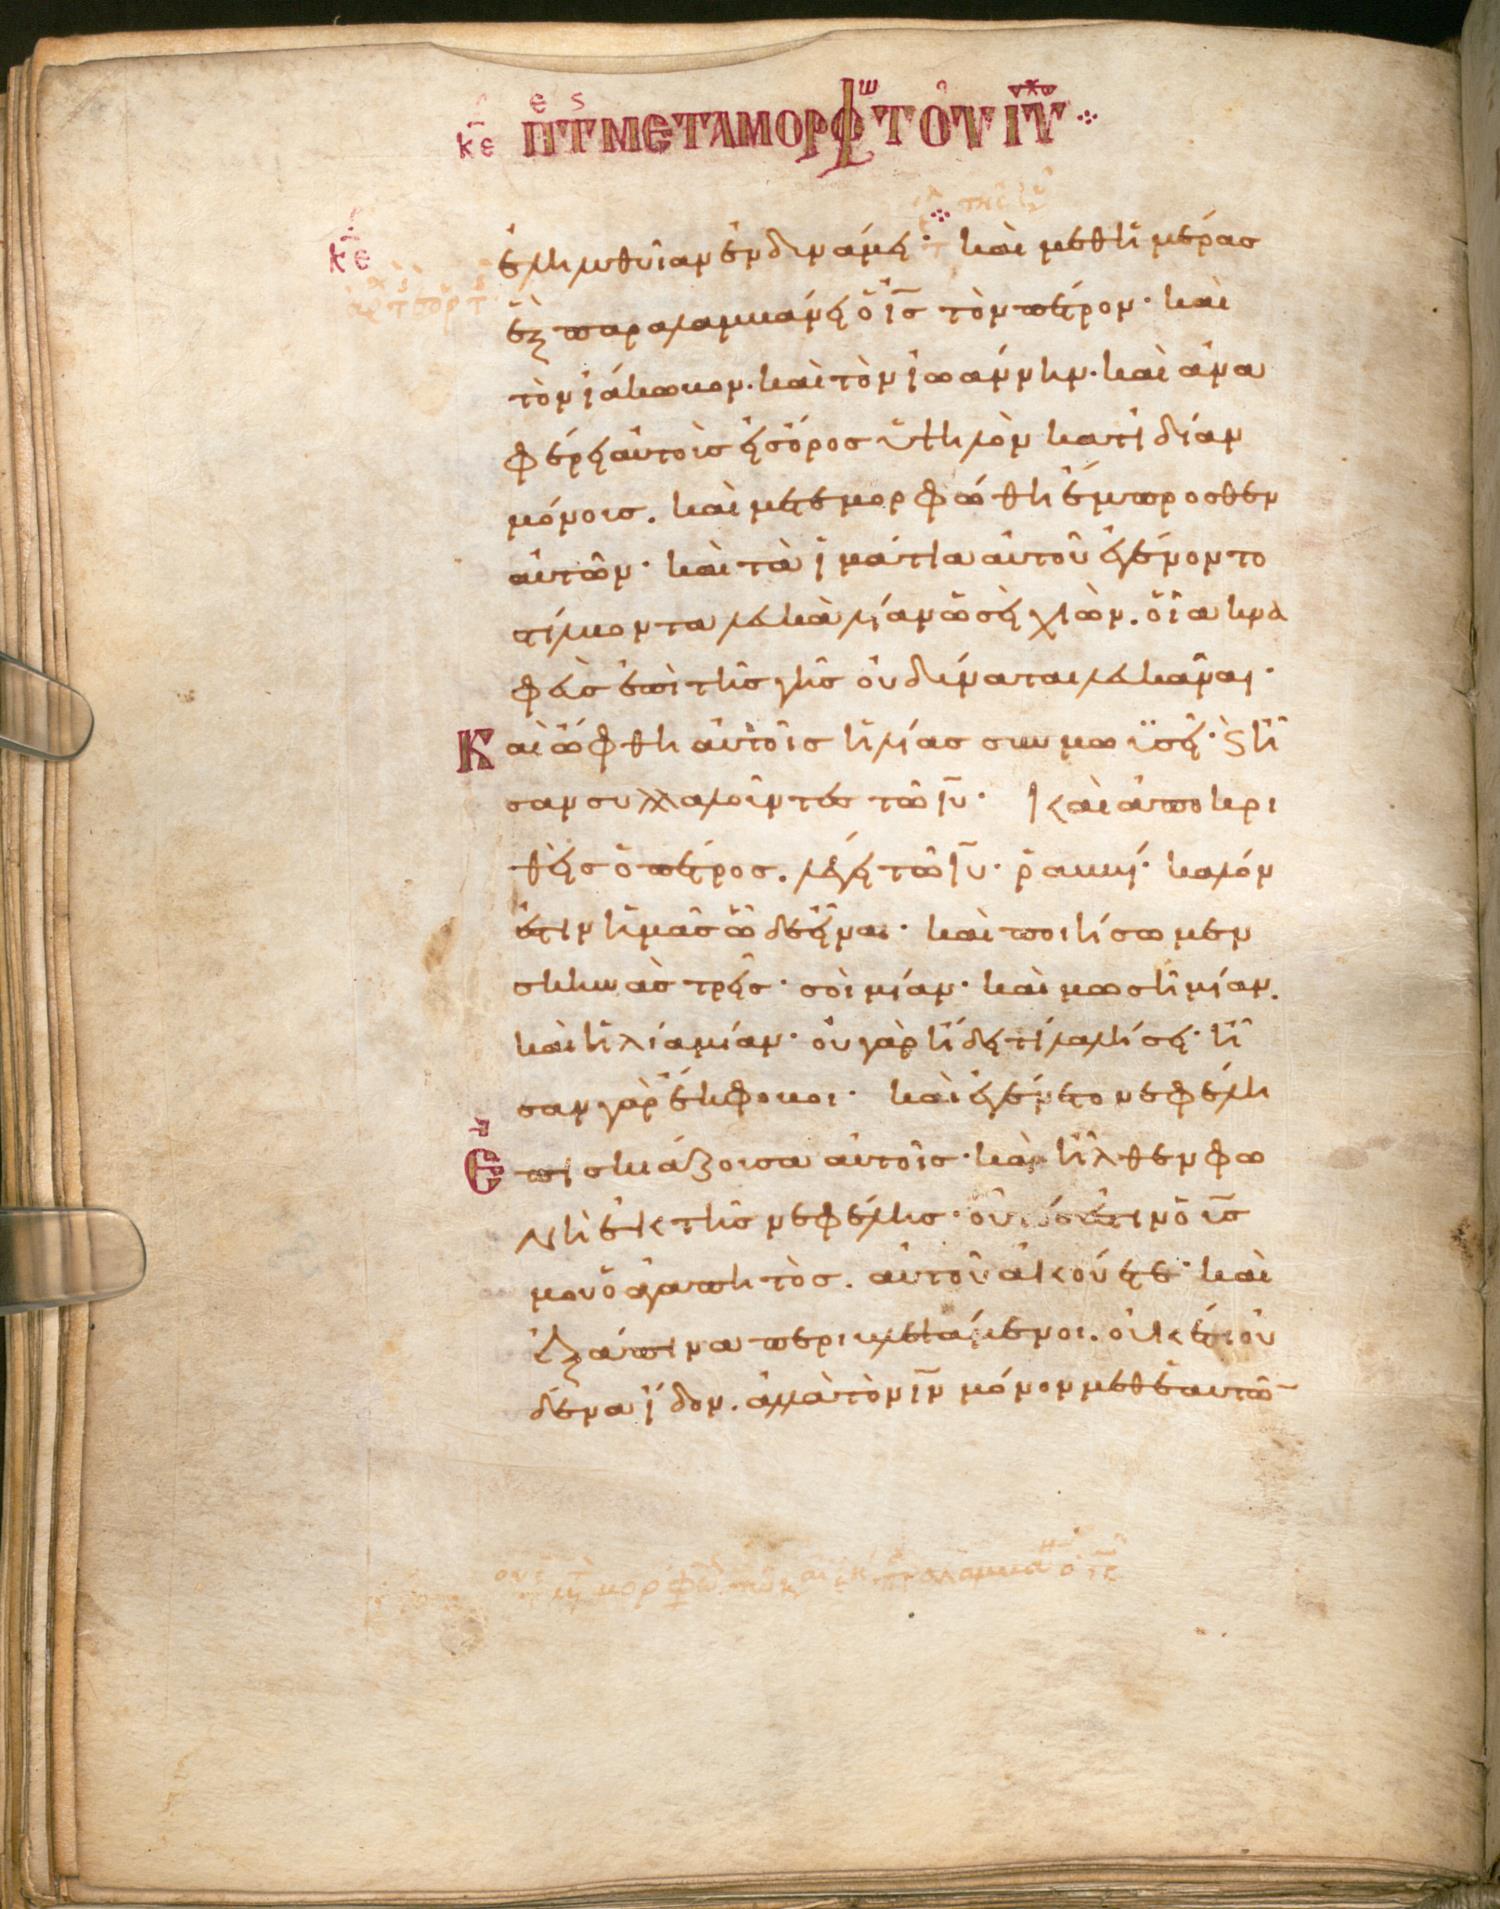 κε περὶ τῆς μεταμορφώσεως τοῦ ιυ χυ
κε
ἐληλυθυῖαν ἐν δυνάμει· καὶ μεθ ἡμέρας
ἓξ παραλαμβάνει ὁ ις τὸν πέτρον· καὶ
τὸν ἰάκωβον· καὶ τὸν ἰωάννην· καὶ ἀνα
φέρει αὐτοὺς εἰς ὄρος ὑψηλὸν κατ ἰδίαν
μόνους. καὶ μετεμορφώθη ἔμπροσθεν
αὐτῶν· καὶ τὰ ἱμάτια αὐτοῦ ἐγένοντο
στίλβοντα λευκὰ λίαν ὡσεὶ χιὼν. οἷα κνα
φεὺς ἐπὶ τῆς γῆς οὐ δύναται λευκᾶναι·
Καὶ ὤφθη αὐτοῖς ἡλίας συν μωϋσεῖ· ϗ ἦ
σαν συλλαλοῦντες τῶ ιυ· Καὶ ἀποκρι
θεὶς ὁ πέτρος. λέγει τῶ ιυ· ῥαββί· καλόν
ἐστιν ἡμᾶς ὧδε εἶναι· καὶ ποιήσωμεν
σκηνὰς τρεῖς· σοὶ μίαν· καὶ μωσῆ μίαν.
καὶ ἡλία μίαν· οὐ γὰρ ἤδει τί λαλήσει· ἦ
σαν γὰρ ἔκφοβοι· καὶ ἐγένετο νεφέλη
Ἐπισκιάζουσα αὐτοῖς· καὶ ἦλθεν φω
νὴ ἐκ τῆς νεφέλης· οὗτός ἐστιν ὁ υς
μου ὁ ἀγαπητὸς. αὐτοῦ ἀκούετε· καὶ
ἐξάπινα περιβλεψάμενοι. οὐκ ἔτι οὐ
δένα εἶδον. ἀλλὰ τὸν ιν μόνον μεθ ἑαυτῶ